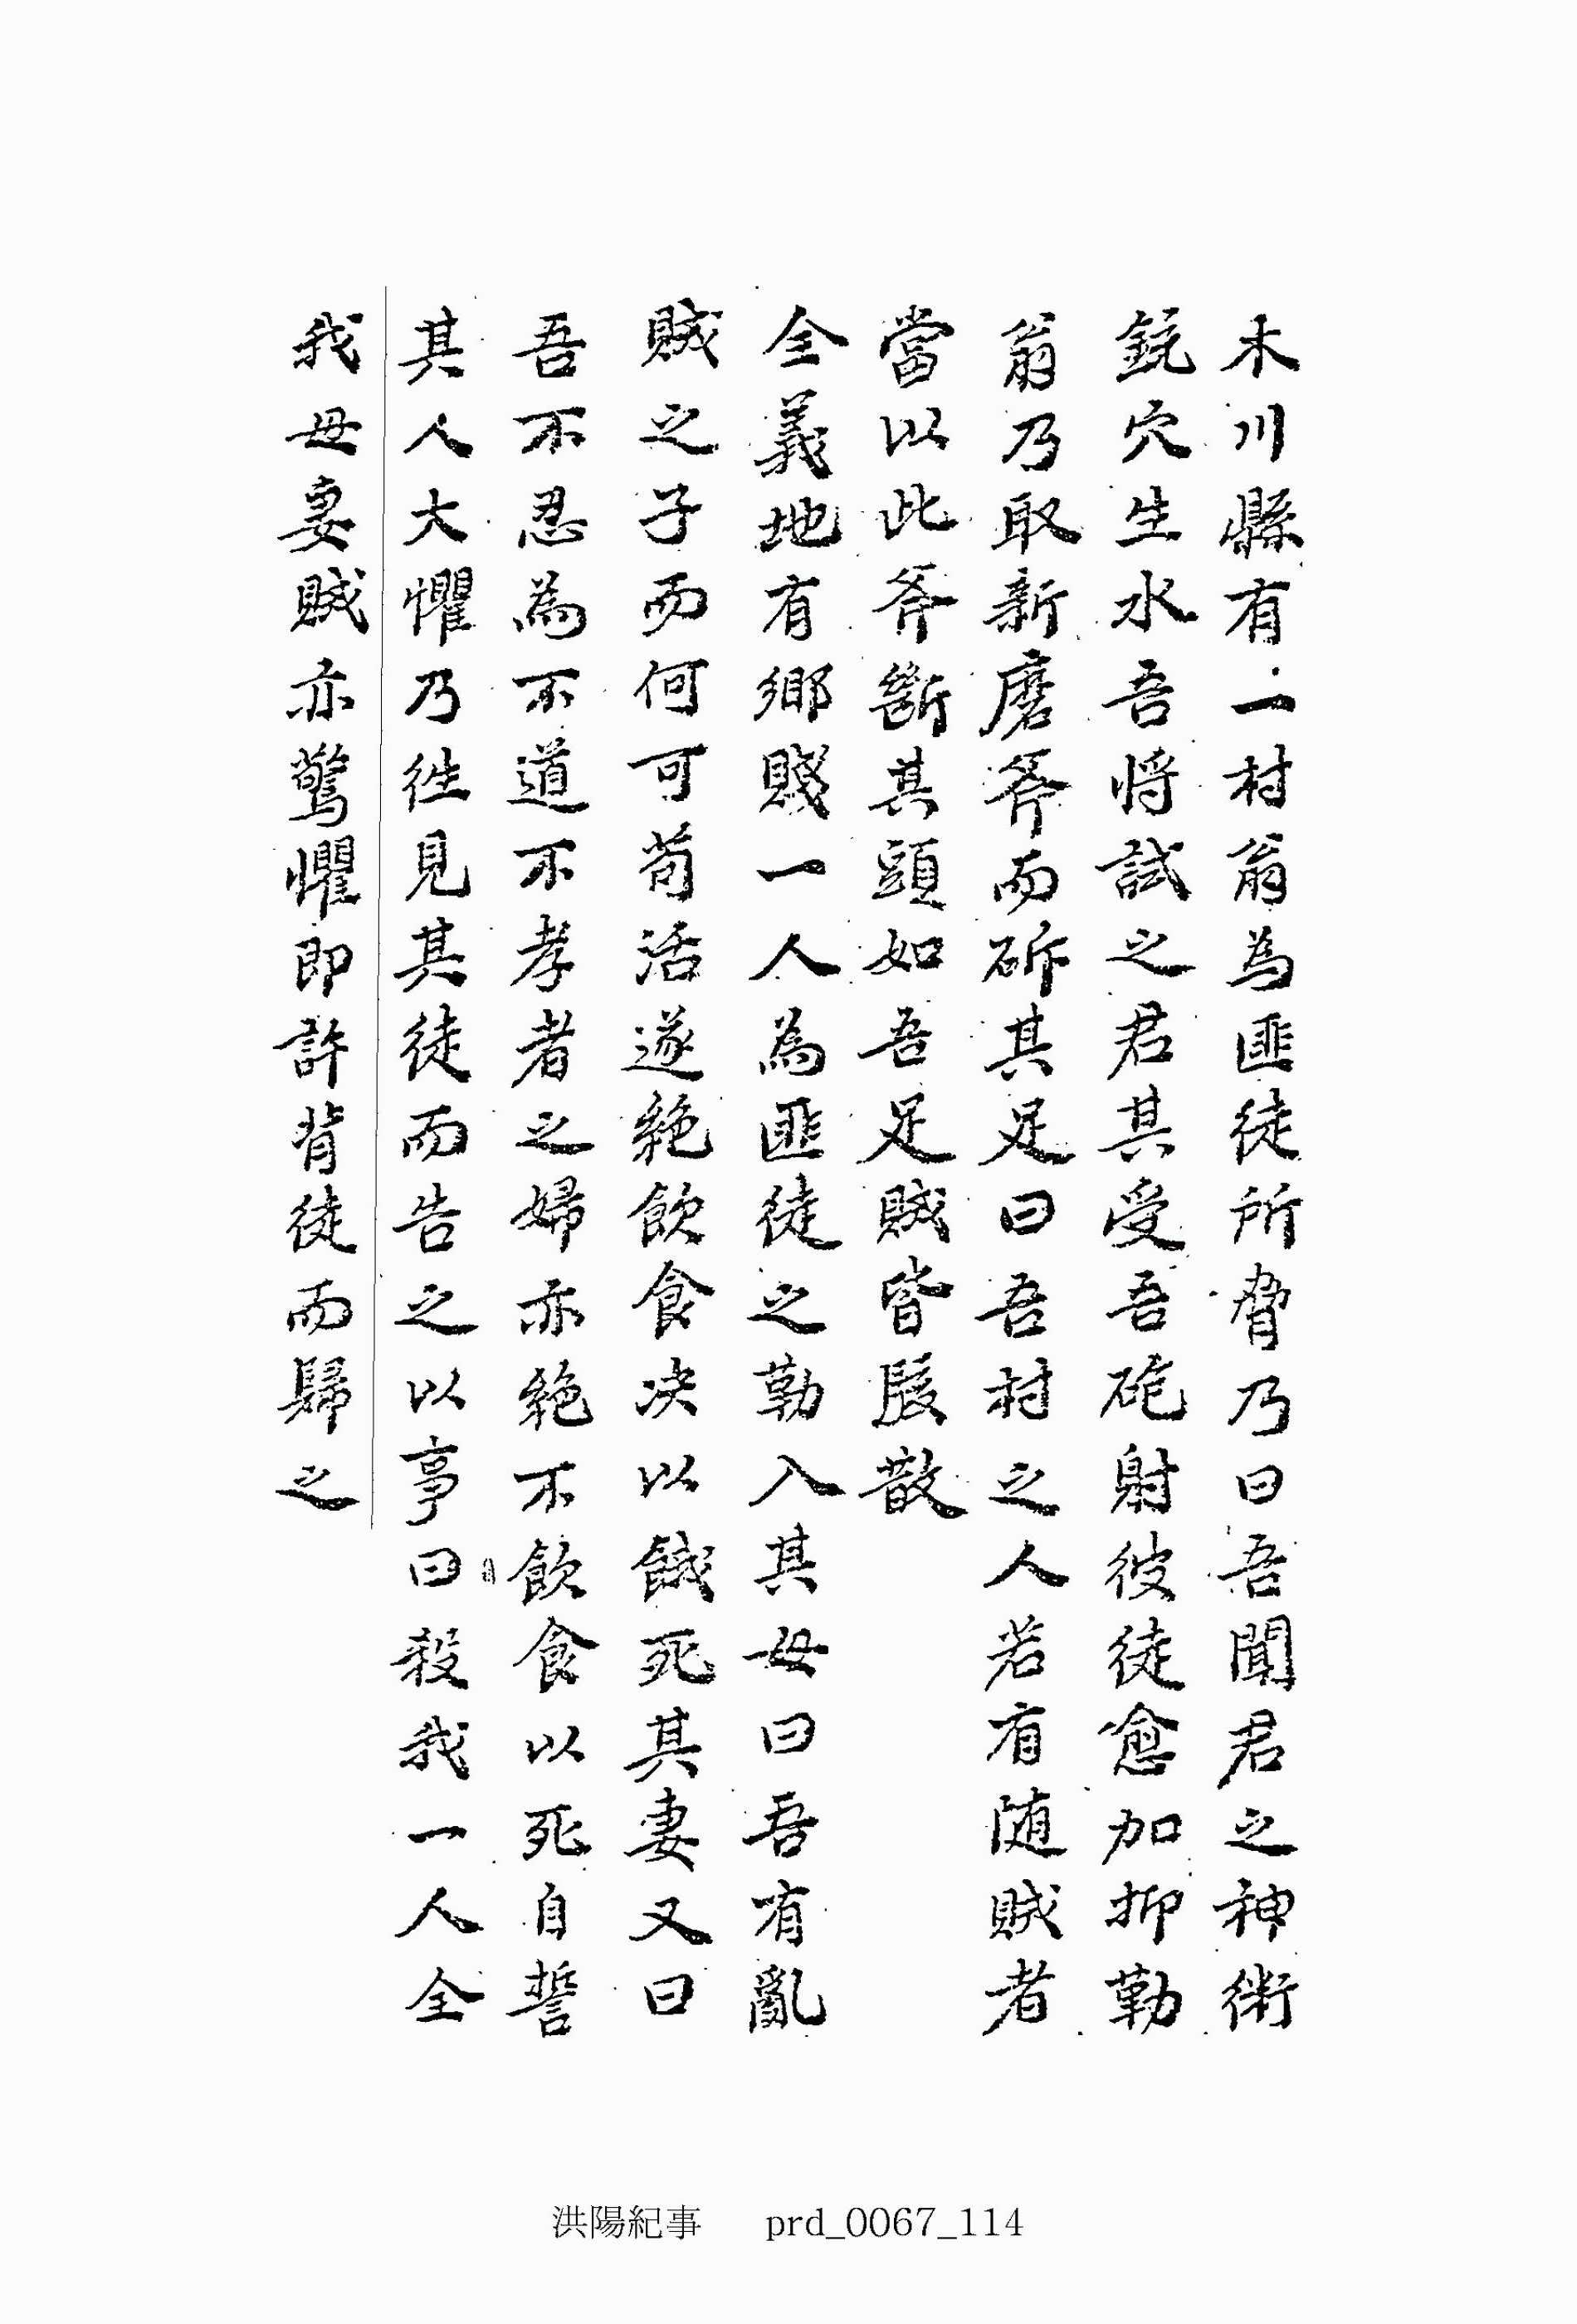 木川縣有一村翁為匪徒所脅乃曰吾聞君之神術
銃穴生水吾將試之君其受吾砲射彼徒愈加抑勒
翁乃取新磨斧而斫其足曰吾村之人若有随賊者
當以此斧斷其頭如吾足賊皆駭散
全義地有鄉賤一人為匪徒之勒入其母曰吾有亂
賊之子而何可苟活遂絶飲食决以餓死其妻又曰
吾不忍為不道不孝者之婦亦絶不飲食以死自誓
其人大懼乃徃見其徒而告之以事曰殺我一人全
我母妻賊亦驚懼即許背徒而歸之
洪陽紀事 prd_0067_114